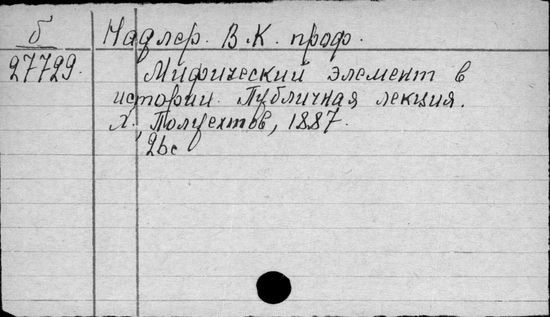 б
27729.
Надлер. В.К. проф.
Мифический элемент в
истории. Публичная лекция.
Х., Полуехтов, 1887.
26с